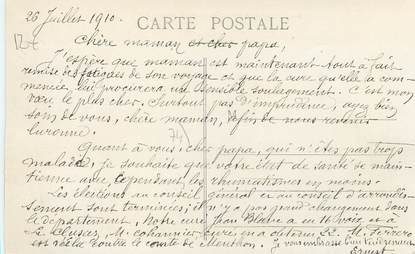 26 Juillet 1910.
CARTE POSTALE
Chère maman et cher papa,
J'espère que maman est maintenant tout à fait
remise des fatigues de son voyage et que la cure qu'elle a com-
mencée, lui procurera un sensible soulagement. C'est mon
vœu le plus cher. Surtout pas d'imprudence, ayez bien
soin de vous, chère maman, afin de nous revenir
luronne.
74
Quant à vous, cher papa, qui n'êtes pas trop
malade, je souhaite que votre état de santé se main-
tienne avec, cependant, les rhumatismes en moins.
Les élections au conseil général et au conseil d'arrondis-
sement sont terminées; il n'y a pas grand changement dans
le département. Notre curé Jean Blanc a eu 16 voix et à
La Clusaz, M. curé en a obtenu 22. M. Ferrero
est réélu contre le comte de Menthon. Je vous embrasse bien tendrement
Ernest